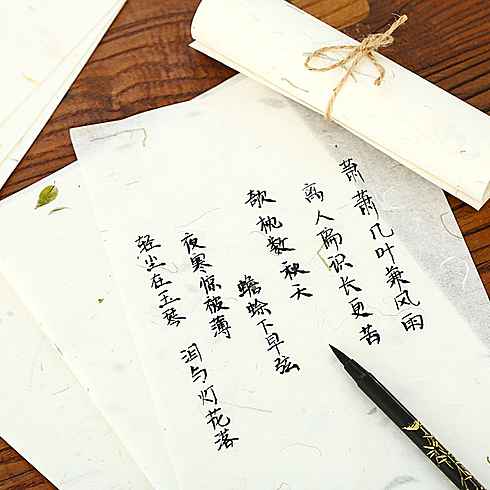 萧萧几叶兼风雨
离人偏识长更苦
欹枕数秋天
蟾蜍下早弦
夜寒惊被薄
泪与灯花落
轻尘在玉琴